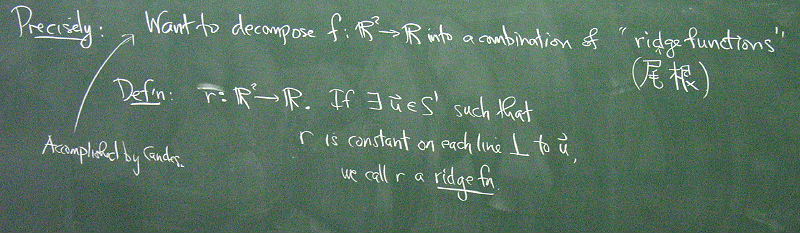 Precisely: Want to decompose f: ℝ² → ℝ into a combination of "ridge functions"
(尾根)
Def'n: r: ℝ² → ℝ. If ∃ u⃗ ∈ S¹ such that
r is constant on each line ⊥ to u⃗,
we call r a ridge fn.
Accomplished by Candes.